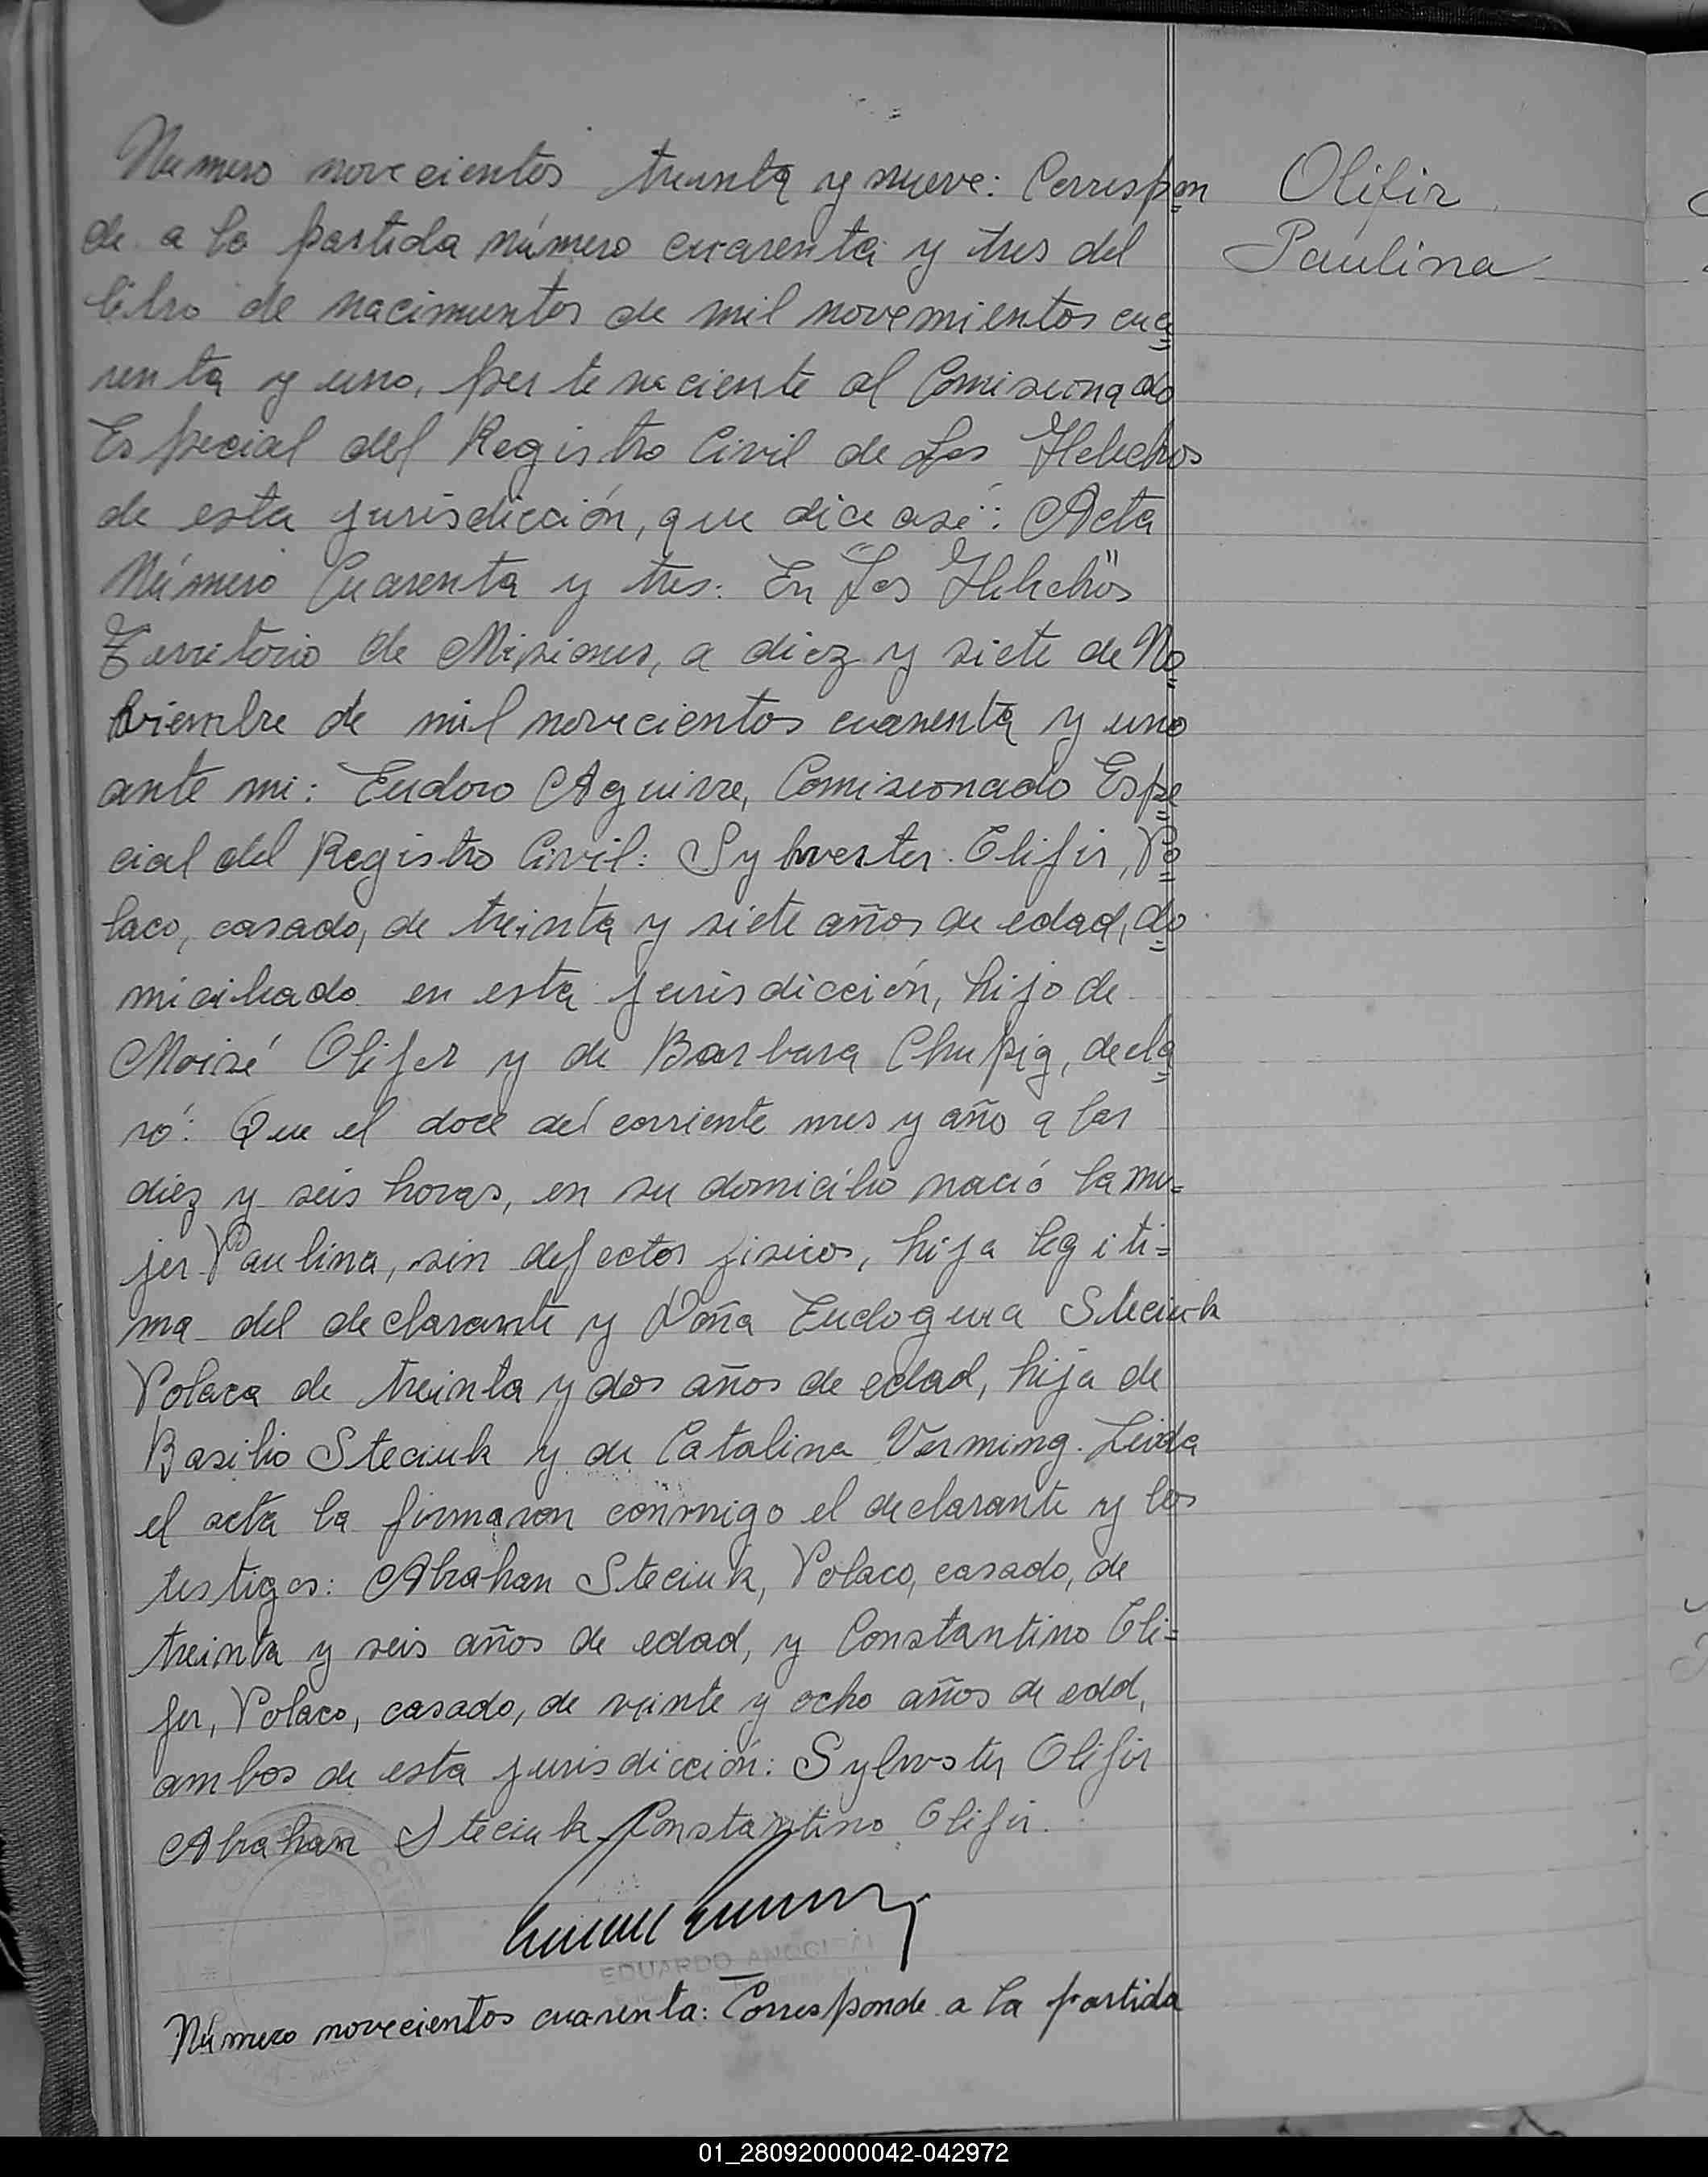 Numero novecientos treinta y nueve: Correspon
de a la partida número cuarenta y tres del
libro de nacimientos de mil novemientos cua
renta y uno, perteneciente al Comisionado
Especial del Registro Civil de Los Helechos
de esta jurisdicción, que dice asi: Acta
Número Cuarenta y tres: En "Los Helechos"
Territorio de Misiones, a diez y siete de No
viembre de mil novecientos cuarenta y uno
ante mi: Eudoro Aguirre, Comisionado Espe
cial del Registro Civil: Sylwester Olifir, Po
laco, casado, de treinta y siete años de edad, do
miciliado en esta jurisdicción, hijo de
Moisé Olifer y de Barbara Chupig, decla
ró: Que el doce del corriente mes y año a las
diez y seis horas, en su domicilio nació la mu=
jer Paulina, sin defectos fisicos, hija legiti=
ma del declarante y Doña Eudoguia Steciuk
Polaca de treinta y dos años de edad, hija de
Basilio Steciuk y de Catalina Verming. Leida
el acta la firmaron conmigo el declarante y los
testigos: Abrahan Steciuk, Polaco, casado, de
treinta y seis años de edad, y Constantino Oli=
fer, Polaco, casado, de veinte y ocho años de edd,
ambos de esta jurisdicción: Sylwster Olifir
Abrahan Steciuk Constantino Olifir.
EDUARDO
Número novecientos cuarenta: Corresponde a la partida
Olifir
Paulina
01_280920000042-042972